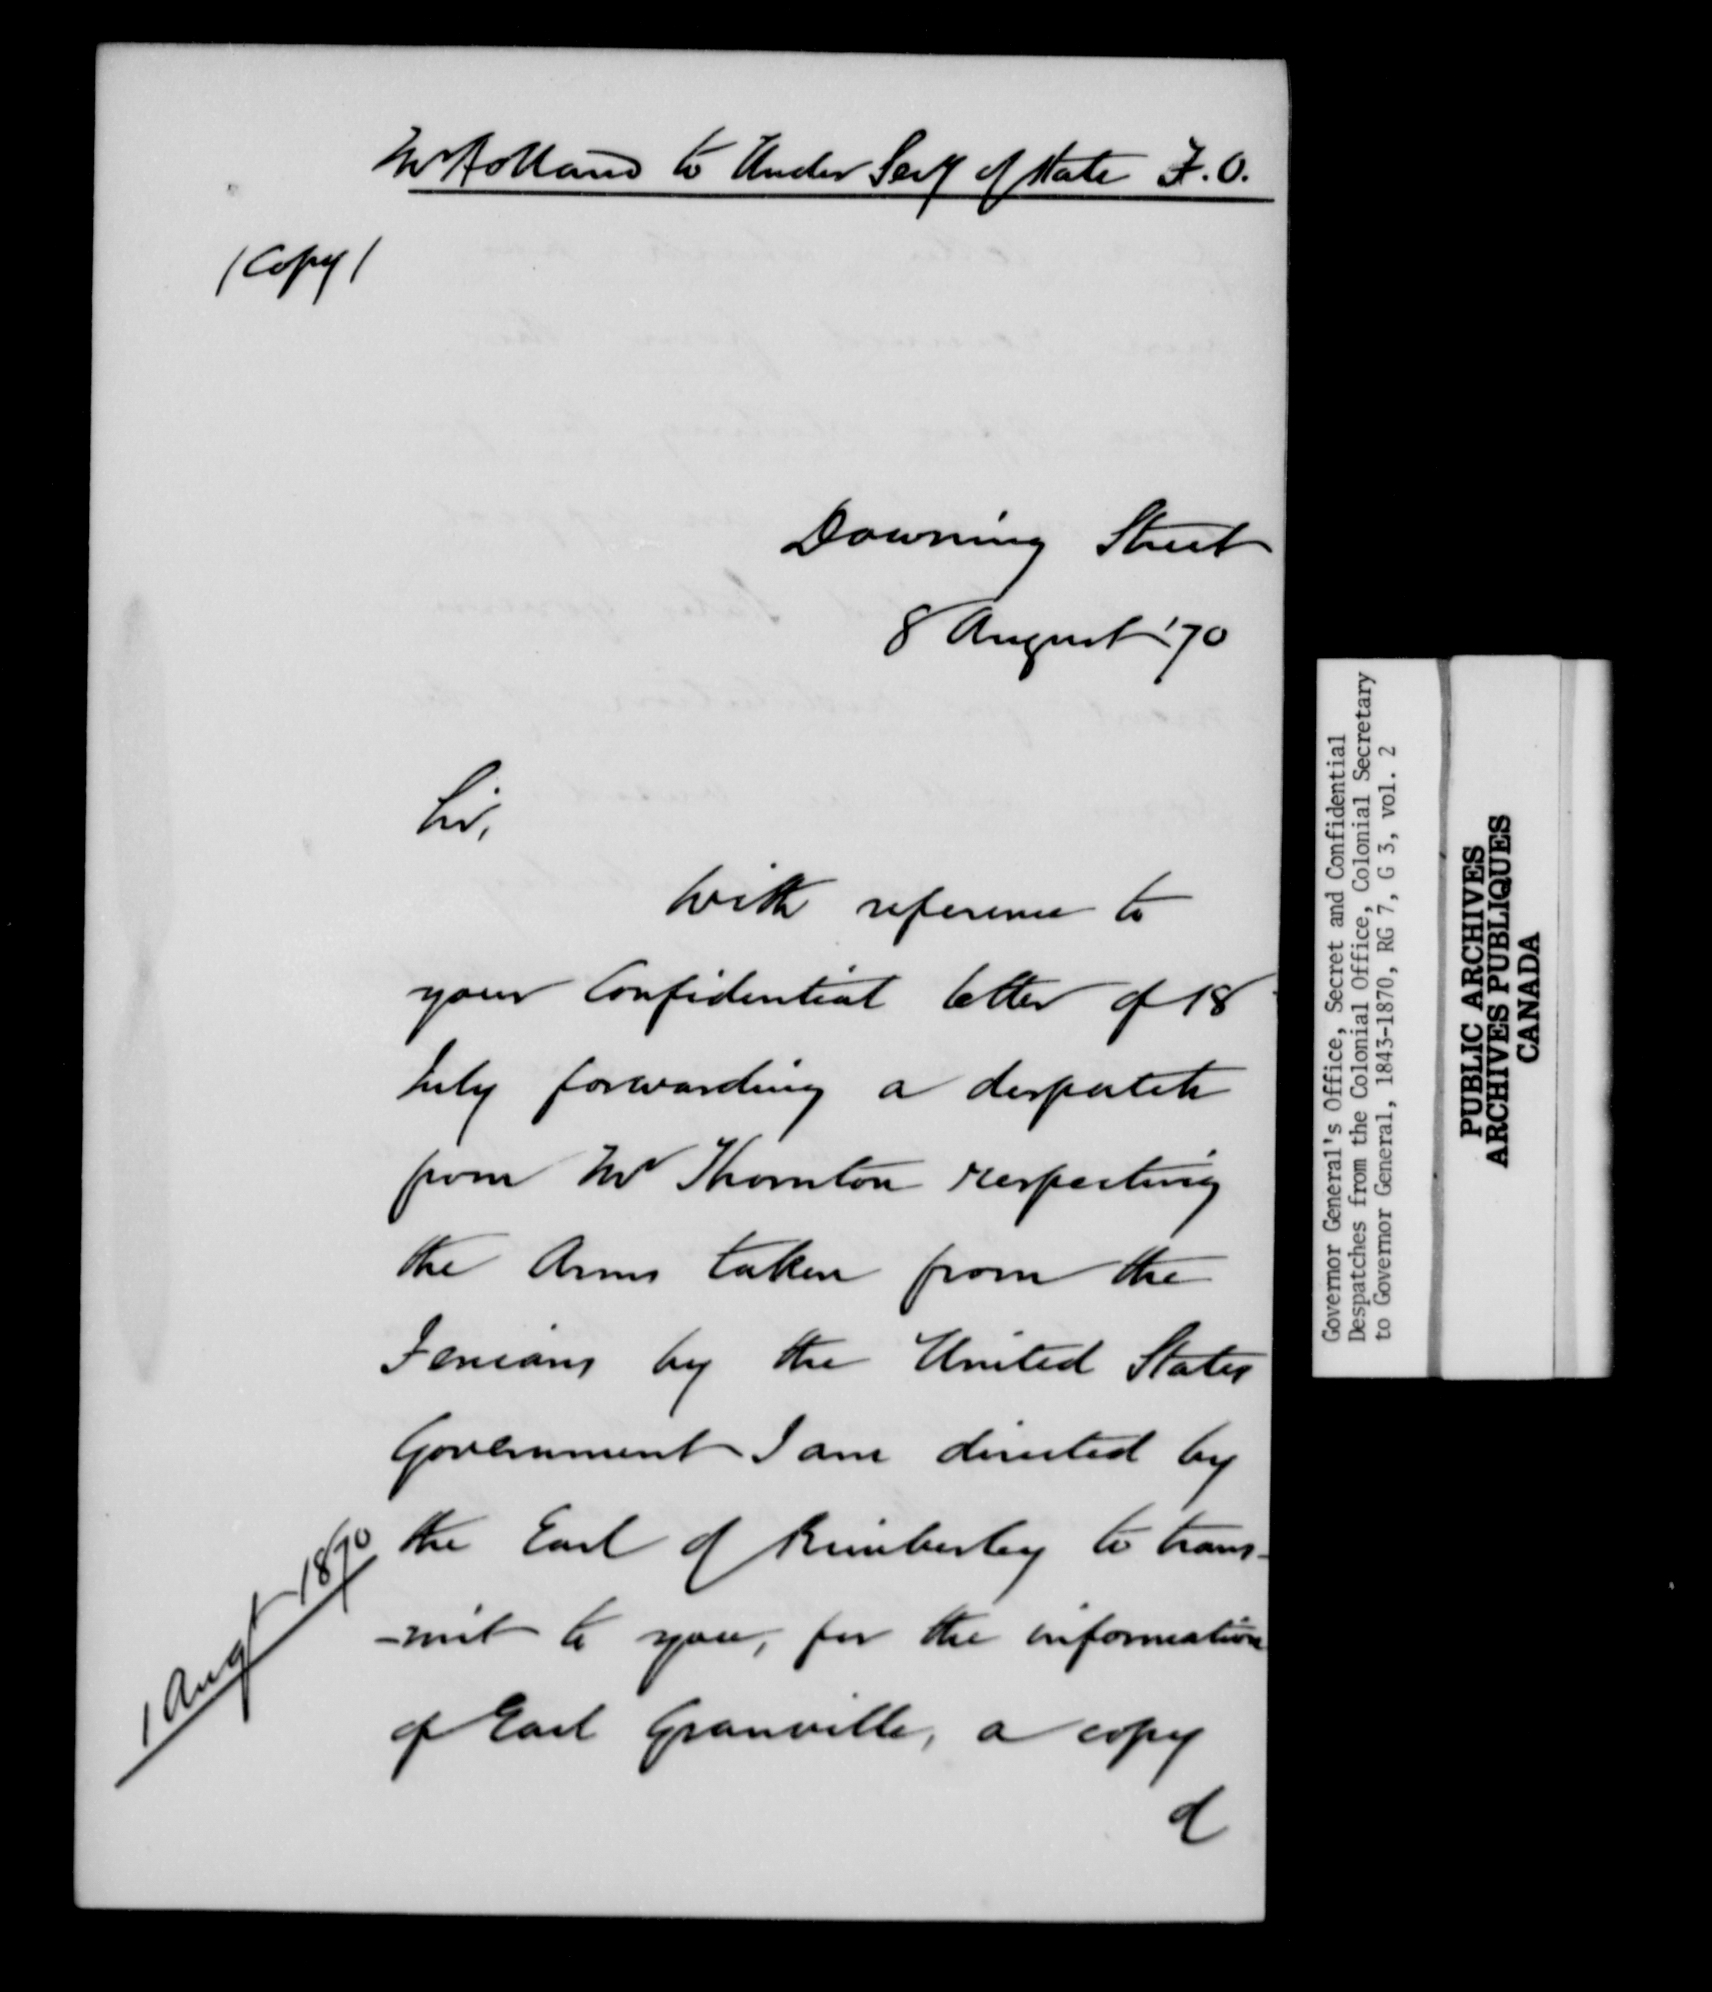 Mr Holland to Under Secy of State F.O.
(Copy)
Downing Street
8 August '70
Sir,
With reference to
your Confidential letter of 18
July forwarding a despatch
from Mr Thornton respecting
the Arms taken from the
Fenians by the United States
Government I am directed by
the Earl of Kimberley to trans-
-mit to you, for the information
of Earl Granville, a copy
of
1 Augt 1870
Governor General's Office, Secret and Confidential
Despatches from the Colonial Office, Colonial Secretary
to Governor General, 1843-1870, RG 7, G 3, vol. 2
PUBLIC ARCHIVES
ARCHIVES PUBLIQUES
CANADA